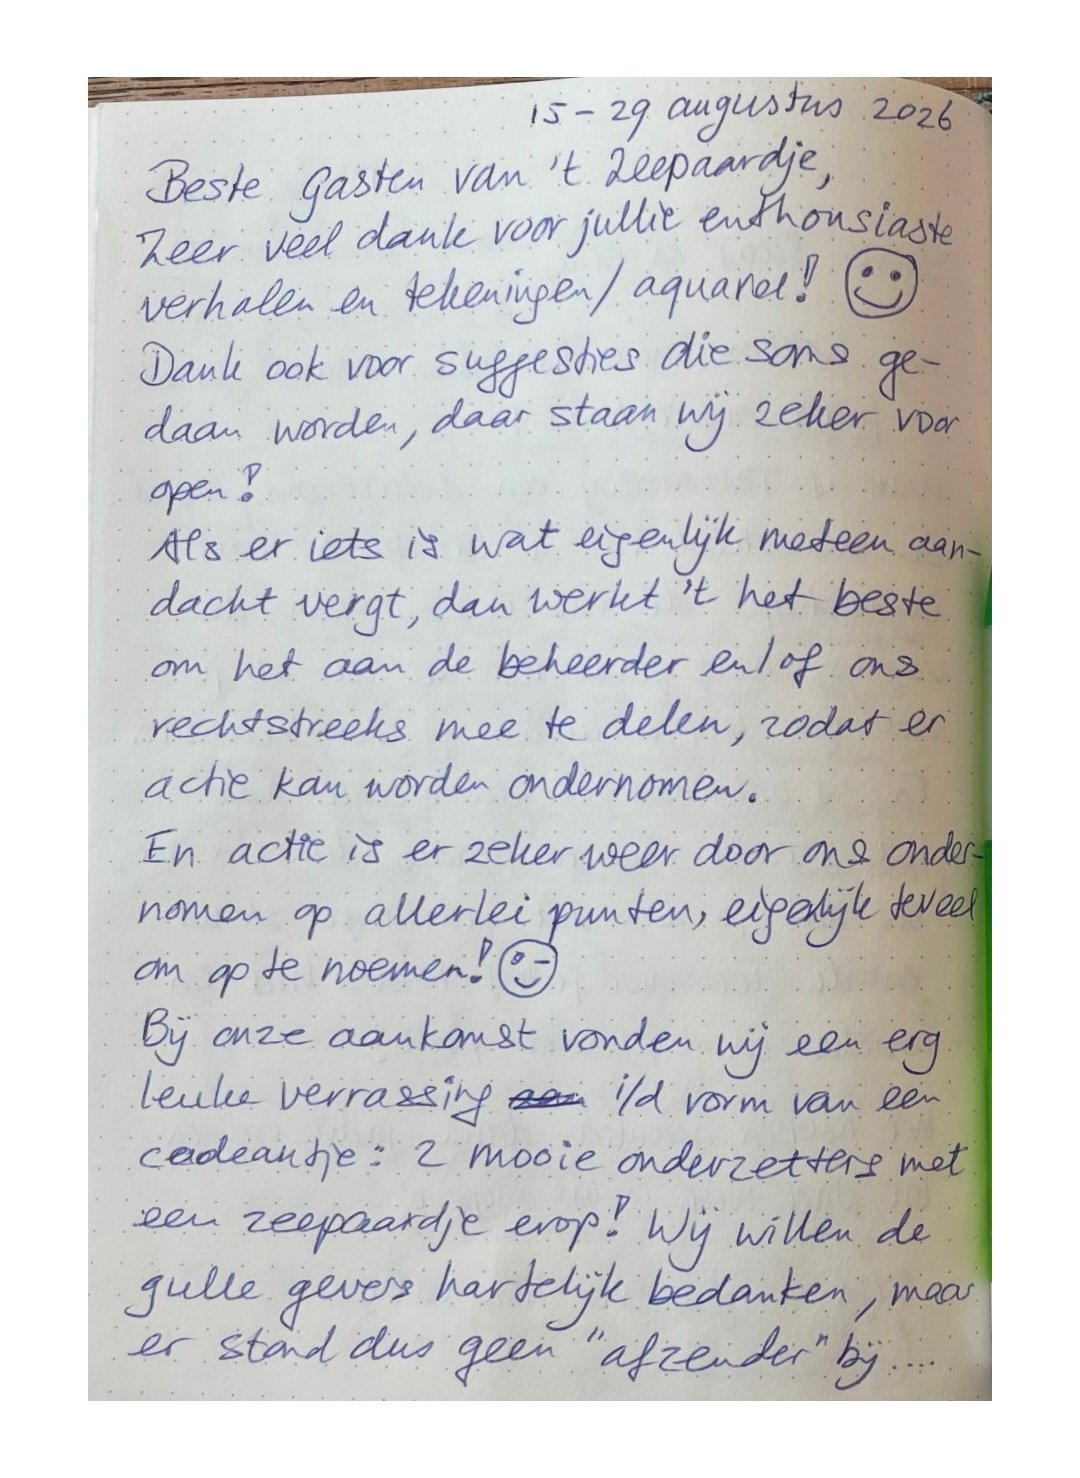 15 - 29 augustus 2026
Beste gasten van 't Zeepaardje,
Zeer veel dank voor jullie enthousiaste
verhalen en tekeningen / aquarel!
Dank ook voor suggesties die soms ge-
daan worden, daar staan wij zeker voor
open!
Als er iets is wat eigenlijk meteen aan-
dacht vergt, dan werkt 't het beste
om het aan de beheerder en/of ons
rechtstreeks mee te delen, zodat er
actie kan worden ondernomen.
En actie is er zeker weer door ons onder-
nomen op allerlei punten, eigenlijk teveel
om op te noemen!
Bij onze aankomst vonden wij een erg
leuke verrassing i/d vorm van een
cadeautje: 2 mooie onderzetters met
een zeepaardje erop! Wij willen de
gulle gevers hartelijk bedanken, maar
er stond dus geen "afzender" bij....